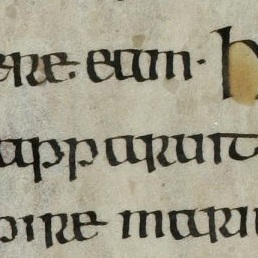 ere eam · h
apparuit
pire mari